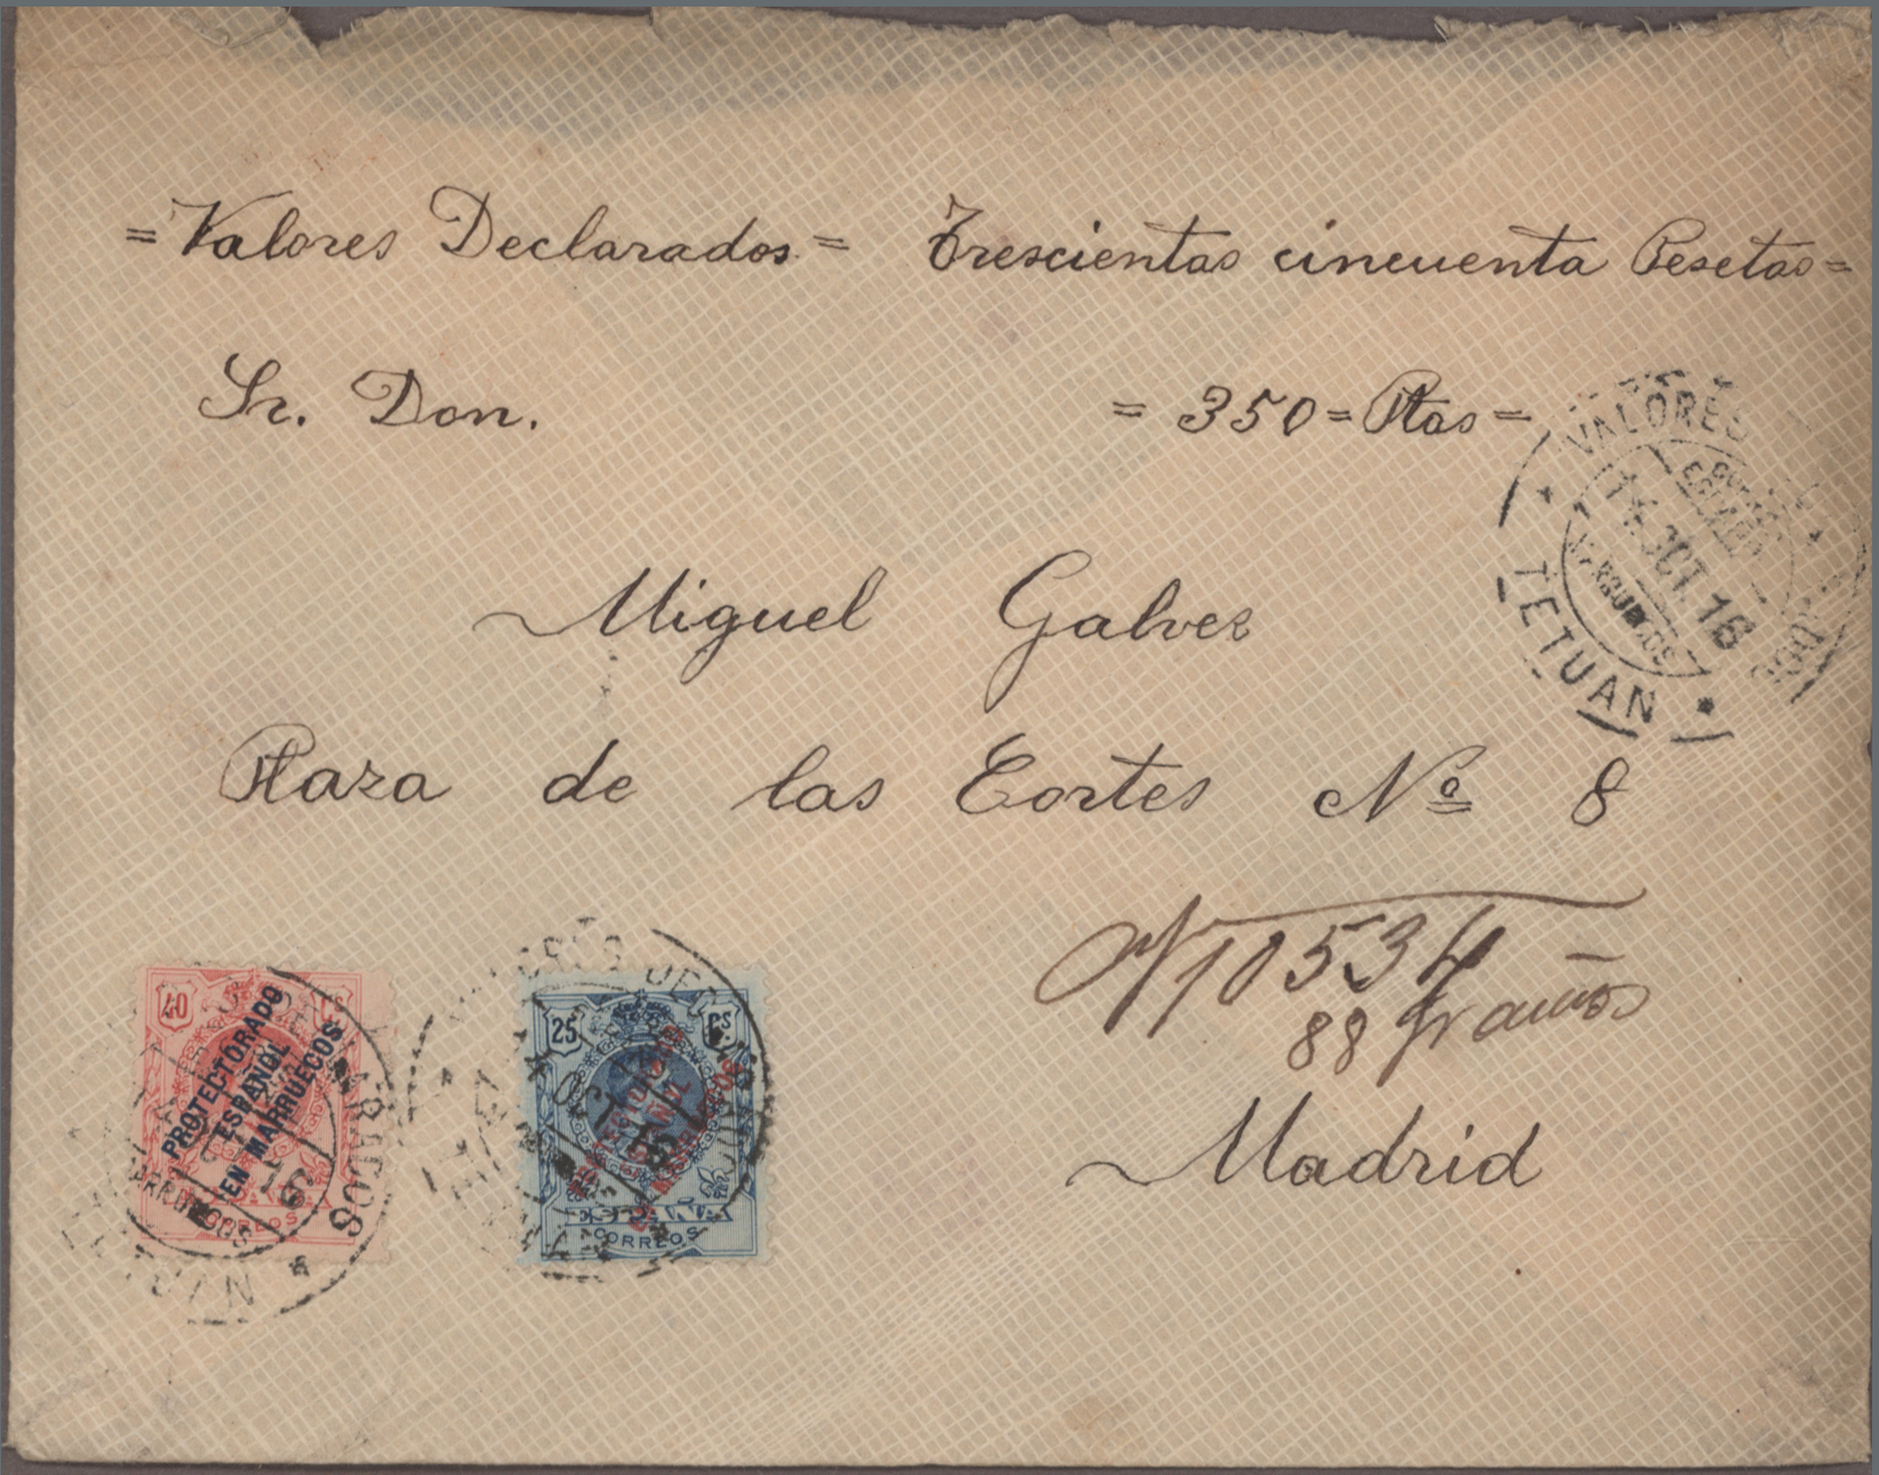 =Valores Declarados= Trescientas cincuenta Pesetas=
Sr. Don. = 350 = Ptas =
VALORES
14 OCT. 16
MARRUECOS
TETUAN
Miguel Galvez
Plaza de las Cortes Nº 8
N 10534
88 gramos
Madrid
40 Cs
PROTECTORADO
ESPAÑOL
EN MARRUECOS
CORREOS
25 Cs
ESPAÑA
CORREOS